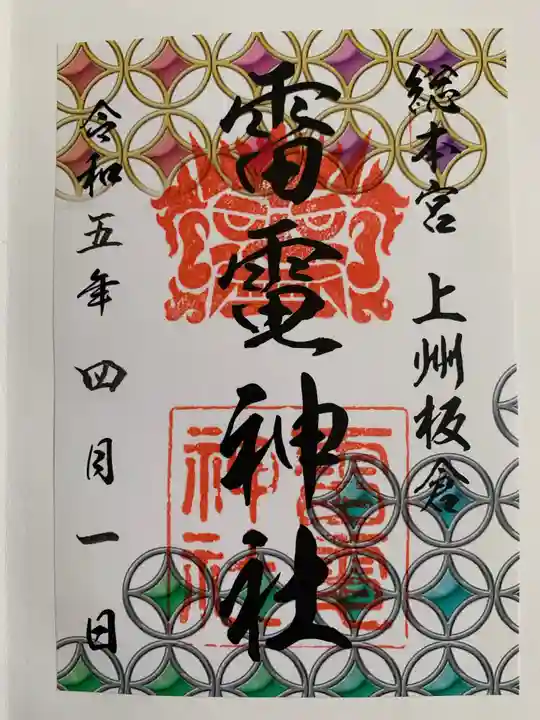 総本宮 上州板倉
雷電神社
雷電神社
令和五年四月一日